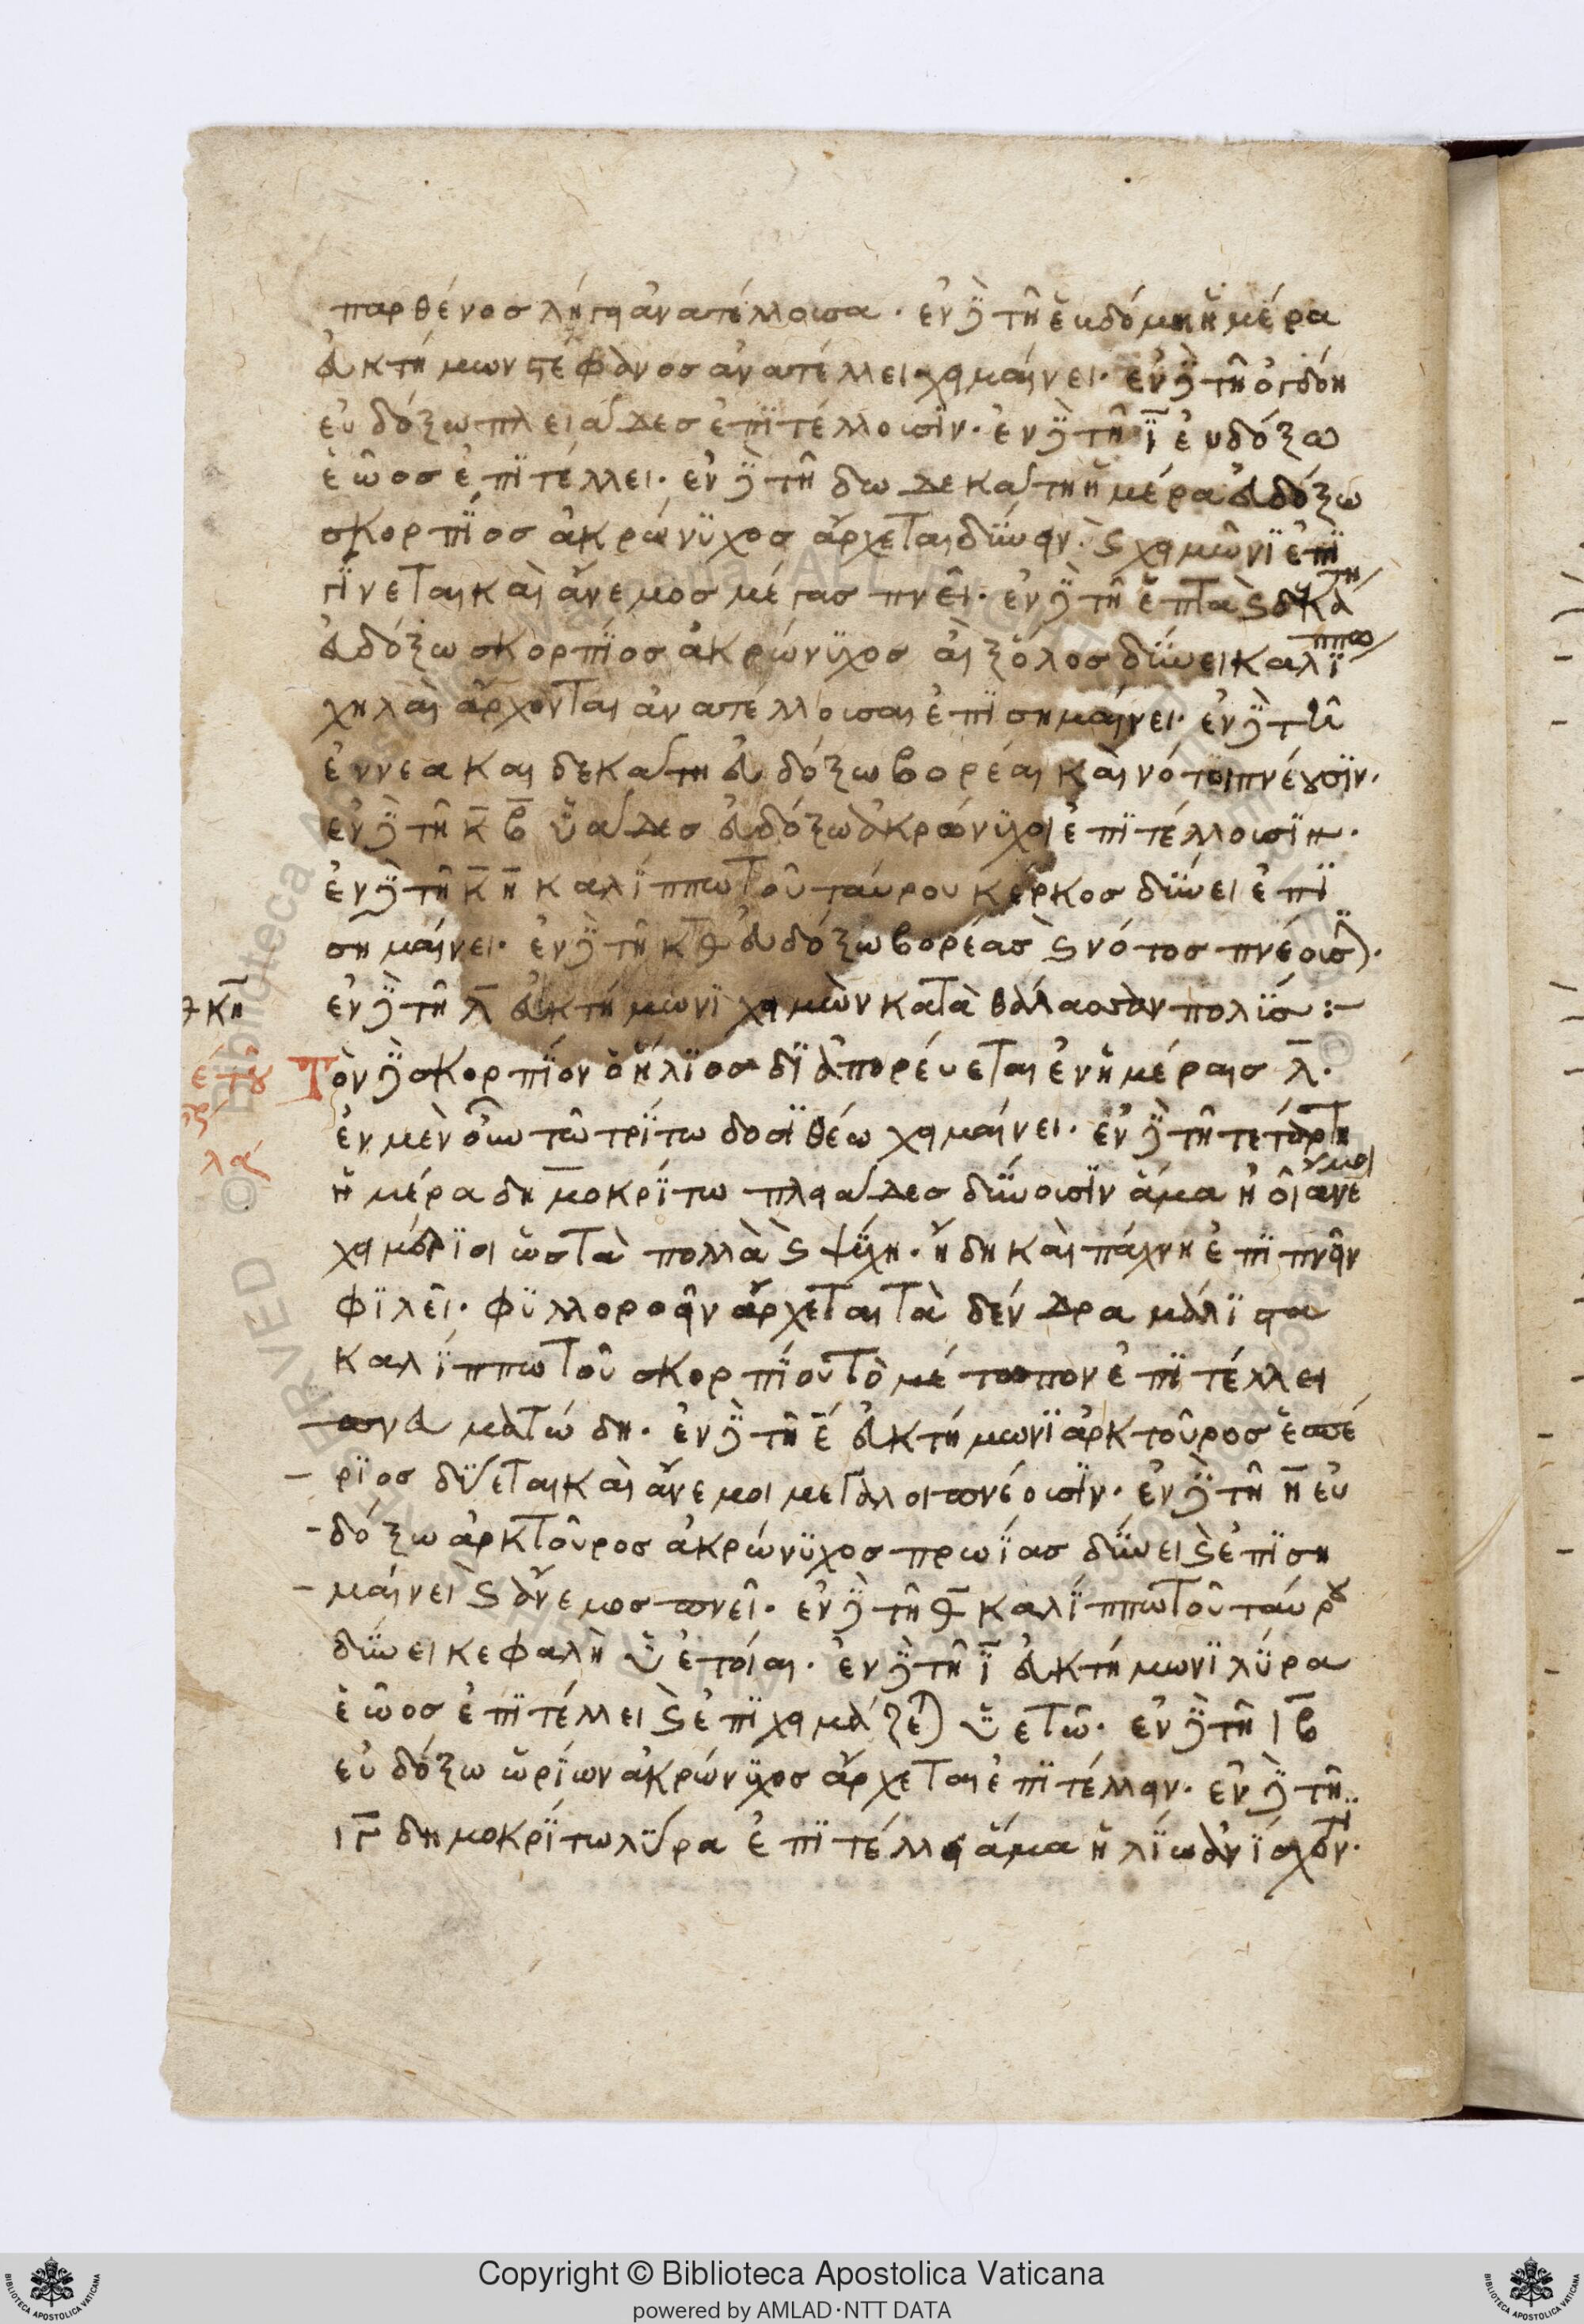 παρθένοσ λήγει ἀνατέλλουσα · ἐν δὲ τῆ ἑυδόμη ἡμέρα
ἐυκτήμων στέφανοσ ἀνατέλλει χειμαίνει · ἐν δὲ τῆ ὀγδόη
εὐδόξω πλειάδεσ ἐπϊτέλλουσϊν · ἐν δὲ τῆ ϊ ἐυδόξω
ἑῶοσ ἐπϊτέλλει · ἐν δὲ τῆ δωδεκάτη ἡμέρα ἐυδόξω
σκορπϊοσ ἀκρώνϋχοσ ἄρχεται δύνειν · καὶ χειμῶνϊ ἐπϊ
γϊνεται καὶ ἄνεμοσ μέγασ πνεῖ · ἐν δὲ τῆ ἑπτὰ καὶ δεκάτη
ἐυδόξω σκορπϊοσ ἀκρώνϋχοσ αἰξ ὅλοσ δύνει καλϊππω
χηλαὶ ἄρχονται ἀνατέλλουσαι ἐπϊσημαίνει · ἐν δὲ τῆ
ἐννεα και δεκάτη ἐυδόξω βορέαι καὶ νότοι πνέουσϊν ·
ἐν δὲ τῆ κβ ὑάδεσ ἐυδόξω ἀκρώνϋχοι ἐπϊτέλλουσϊν ·
ἐν δὲ τῆ κη καλϊππω τοῦ ταύρου κέρκοσ δύνει ἐπϊ
σημαίνει · ἐν δὲ τῆ κθ ἐυδόξω βορέασ καὶ νότοσ πνέουσϊν ·
ἐν δὲ τῆ λ ἐυκτήμωνϊ χειμὼν κατὰ θάλασσαν πολϊσ :-
κη
Τὸν δὲ σκορπϊον ὁ ἥλϊοσ δϊαπορέυεται ἐν ἡμέραισ λ ·
λα
ἐν μὲν οὖν τῶ τρϊτω δοσϊθέω χειμαίνει · ἐν δὲ τῆ τετάρτη
ἡμέρα δημοκρϊτω πλειάδεσ δύνουσϊν ἅμα ἠοῖ ἀνεμοι
χειμέρϊοι ὡστὰ πολλὰ καὶ ψύχη · ἤδη καὶ πάχνη ἐπϊπνεῖν
φϊλεῖ · φϋλλοροεῖν ἄρχεται τὰ δένδρα μάλϊστα
καλϊππω τοῦ σκορπϊου τὸ μέτοπον ἐπϊτέλλει
πνευματώδη · ἐν δὲ τῆ ε ἐυκτήμωνϊ ἀρκτοῦροσ ἑσπέ
ρϊοσ δύεται καὶ ἄνεμοι μεγάλοι πνέουσϊν · ἐν δὲ τῆ η εὐ
δόξω ἀρκτοῦροσ ἀκρώνϋχοσ πρωϊασ δύνει καὶ ἐπϊση
μαίνει καὶ ἄνεμοσ πνεῖ · ἐν δὲ τῆ θ καλϊππω τοῦ ταύρου
δύνει κεφαλὴ ὑετοίαι · ἐν δὲ τῆ ϊ ἐυκτήμωνϊ λϋρα
ἑῶοσ ἐπϊτέλλει καὶ ἐπϊχειμάζεται ὑετῶ · ἐν δὲ τῆ ιβ
εὐδόξω ὠρϊων ἀκρώνϋχοσ ἄρχεται ἐπϊτέλλειν · ἐν δὲ τῆ
ιγ δημοκρϊτω λϋρα ἐπϊτέλλει ἅμα ἡλϊω ἀνϊσχοντι ·
Copyright © Biblioteca Apostolica Vaticana
powered by AMLAD·NTT DATA